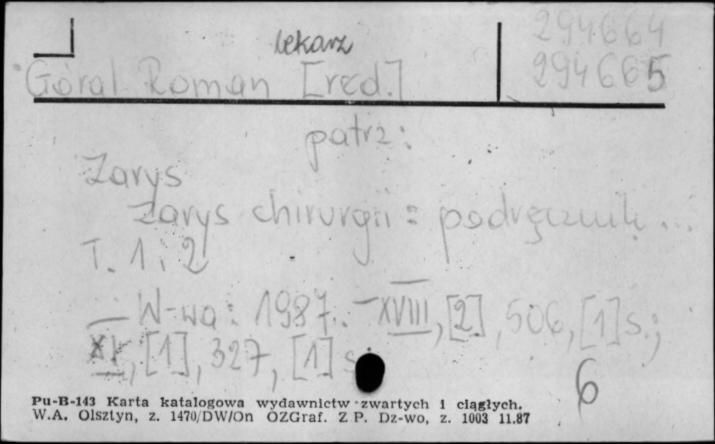 lekarz
294664
Góral Roman [red.]
294665
patrz:
Zarys
Zarys chirurgii : podręcznik ...
T. 1 i 2
— W-wa : 1987. – XVIII, [2], 506, [1] s.;
XI, [1], 327, [1] s.
6
Pu-B-143 Karta katalogowa wydawnictw zwartych i ciągłych.
W.A. Olsztyn, z. 1470/DW/On OZGraf. Z P. Dz-wo, z. 1003 11.87